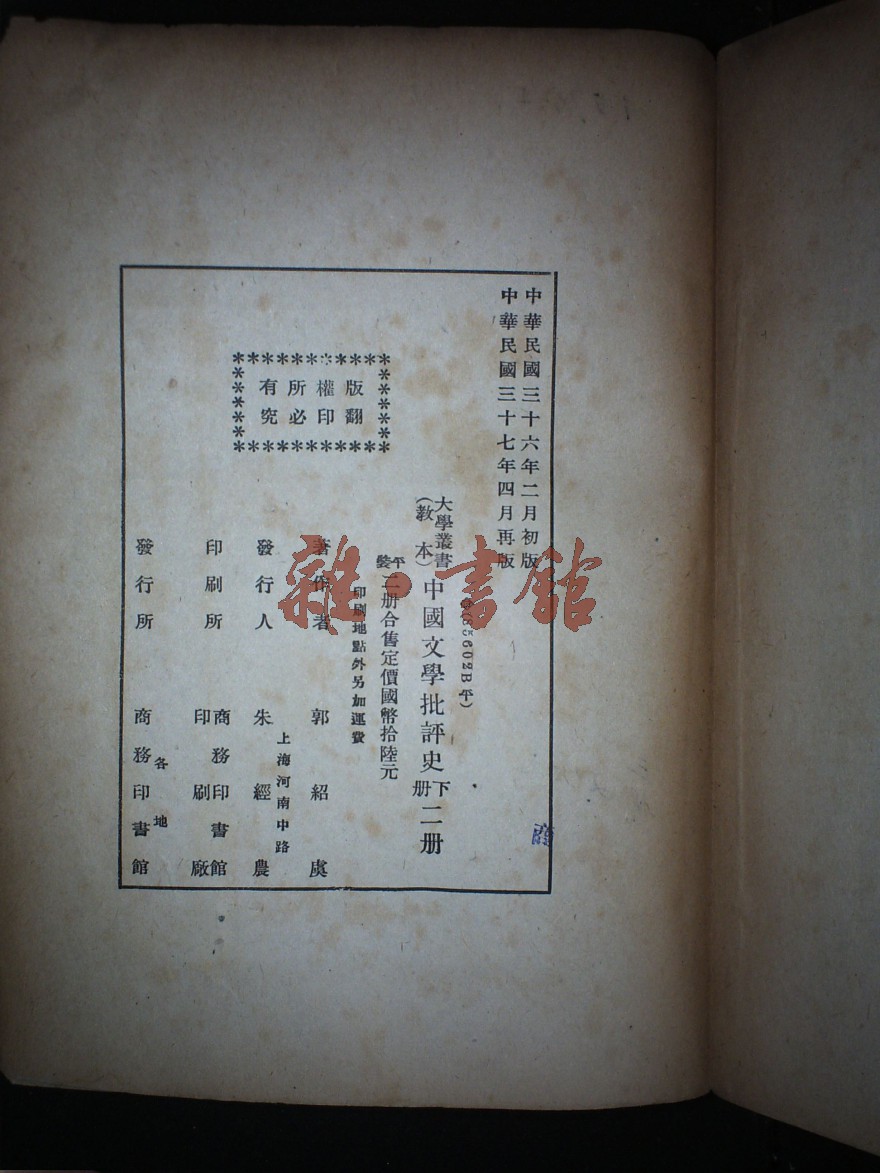 中華民國三十六年二月初版
中華民國三十七年四月再版
(
85602B平)
大學叢書
(教本)
中國文學批評史
下册
二册
平裝二册合售定價國幣拾陸元
印刷地點外另加運費
版權所有
翻印必究
著作者 郭紹虞
發行人 朱經農
上海河南中路
印刷所 商務印書館
印刷廠
發行所 商務印書館
各地
雜·書館
商